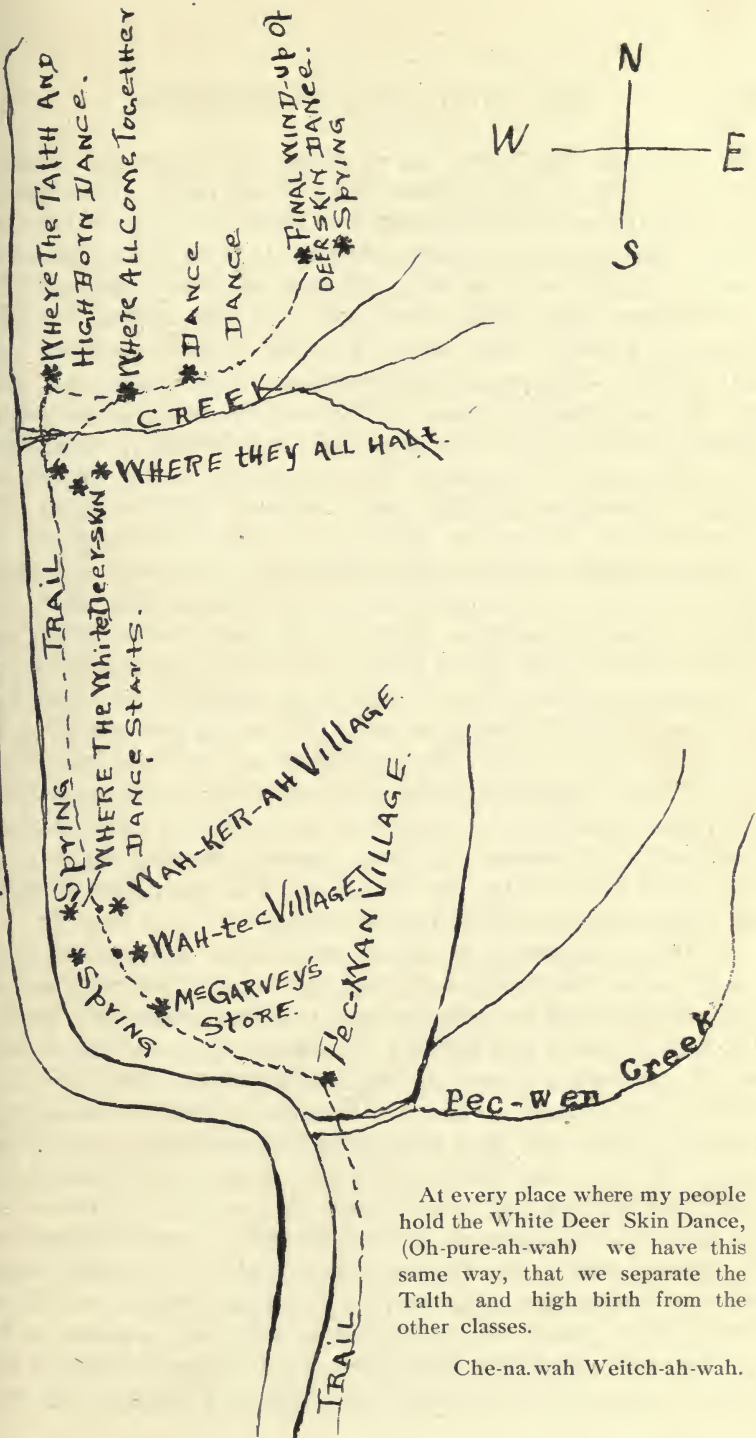 WHERE THE TALTH AND
HIGH BORN DANCE.
WHERE ALL COME TOGETHER
DANCE
DANCE
FINAL WIND-UP OF
DEER SKIN DANCE.
SPRING
N
W E
S
CREEK
WHERE THEY ALL HALT.
TRAIL
SPRING
WHERE THE White Deer-skin
DANCE STARTS.
WAH-KER-AH VILLAGE.
WAH-tec VILLAGE.
McGARVEY'S
STORE.
SPRING
PEC-WAN VILLAGE.
Pec-wen Creek
TRAIL
At every place where my people
hold the White Deer Skin Dance,
(Oh-pure-ah-wah) we have this
same way, that we separate the
Talth and high birth from the
other classes.
Che-na.wah Weitch-ah-wah.